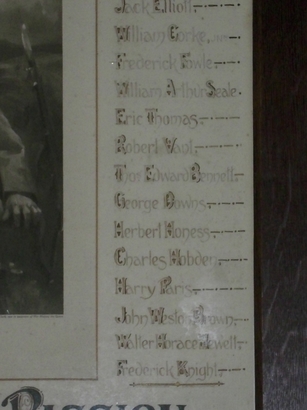 Jack Elliott
William Corke
Frederick Fowle
William Arthur Seale
Eric Thomas
Robert
Thos Edward Bennett
George Downs
Herbert Honess
Charles Hobden
Harry Paris
John Weston Brown
Walter Horace Jewell
Frederick Knight